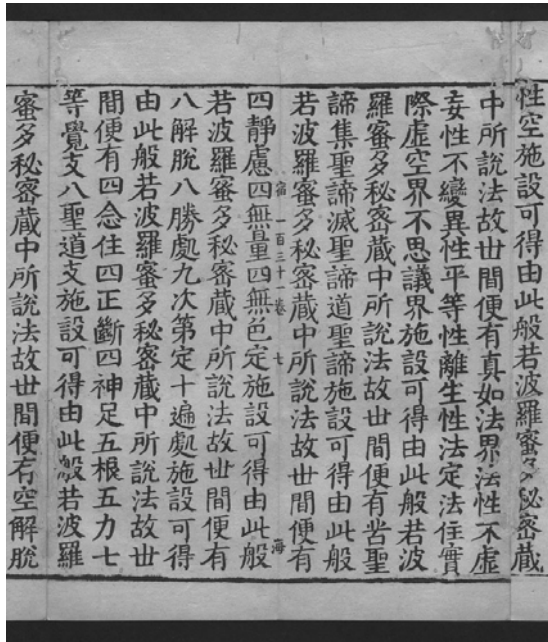 性空施設可得由此般若波羅蜜多秘密藏
中所說法故世間便有真如法界法性不虛
妄性不變異性平等性離生性法定法住實
際虛空界不思議界施設可得由此般若波
羅蜜多秘密藏中所說法故世間便有苦聖
諦集聖諦滅聖諦道聖諦施設可得由此般
若波羅蜜多秘密藏中所說法故世間便有
一百三十卷 七 海
四靜慮四無量四無色定施設可得由此般
若波羅蜜多秘密藏中所說法故世間便有
八解脫八勝處九次第定十遍處施設可得
由此般若波羅蜜多秘密藏中所說法故世
間便有四念住四正斷四神足五根五力七
等覺支八聖道支施設可得由此般若波羅
蜜多秘密藏中所說法故世間便有空解脫